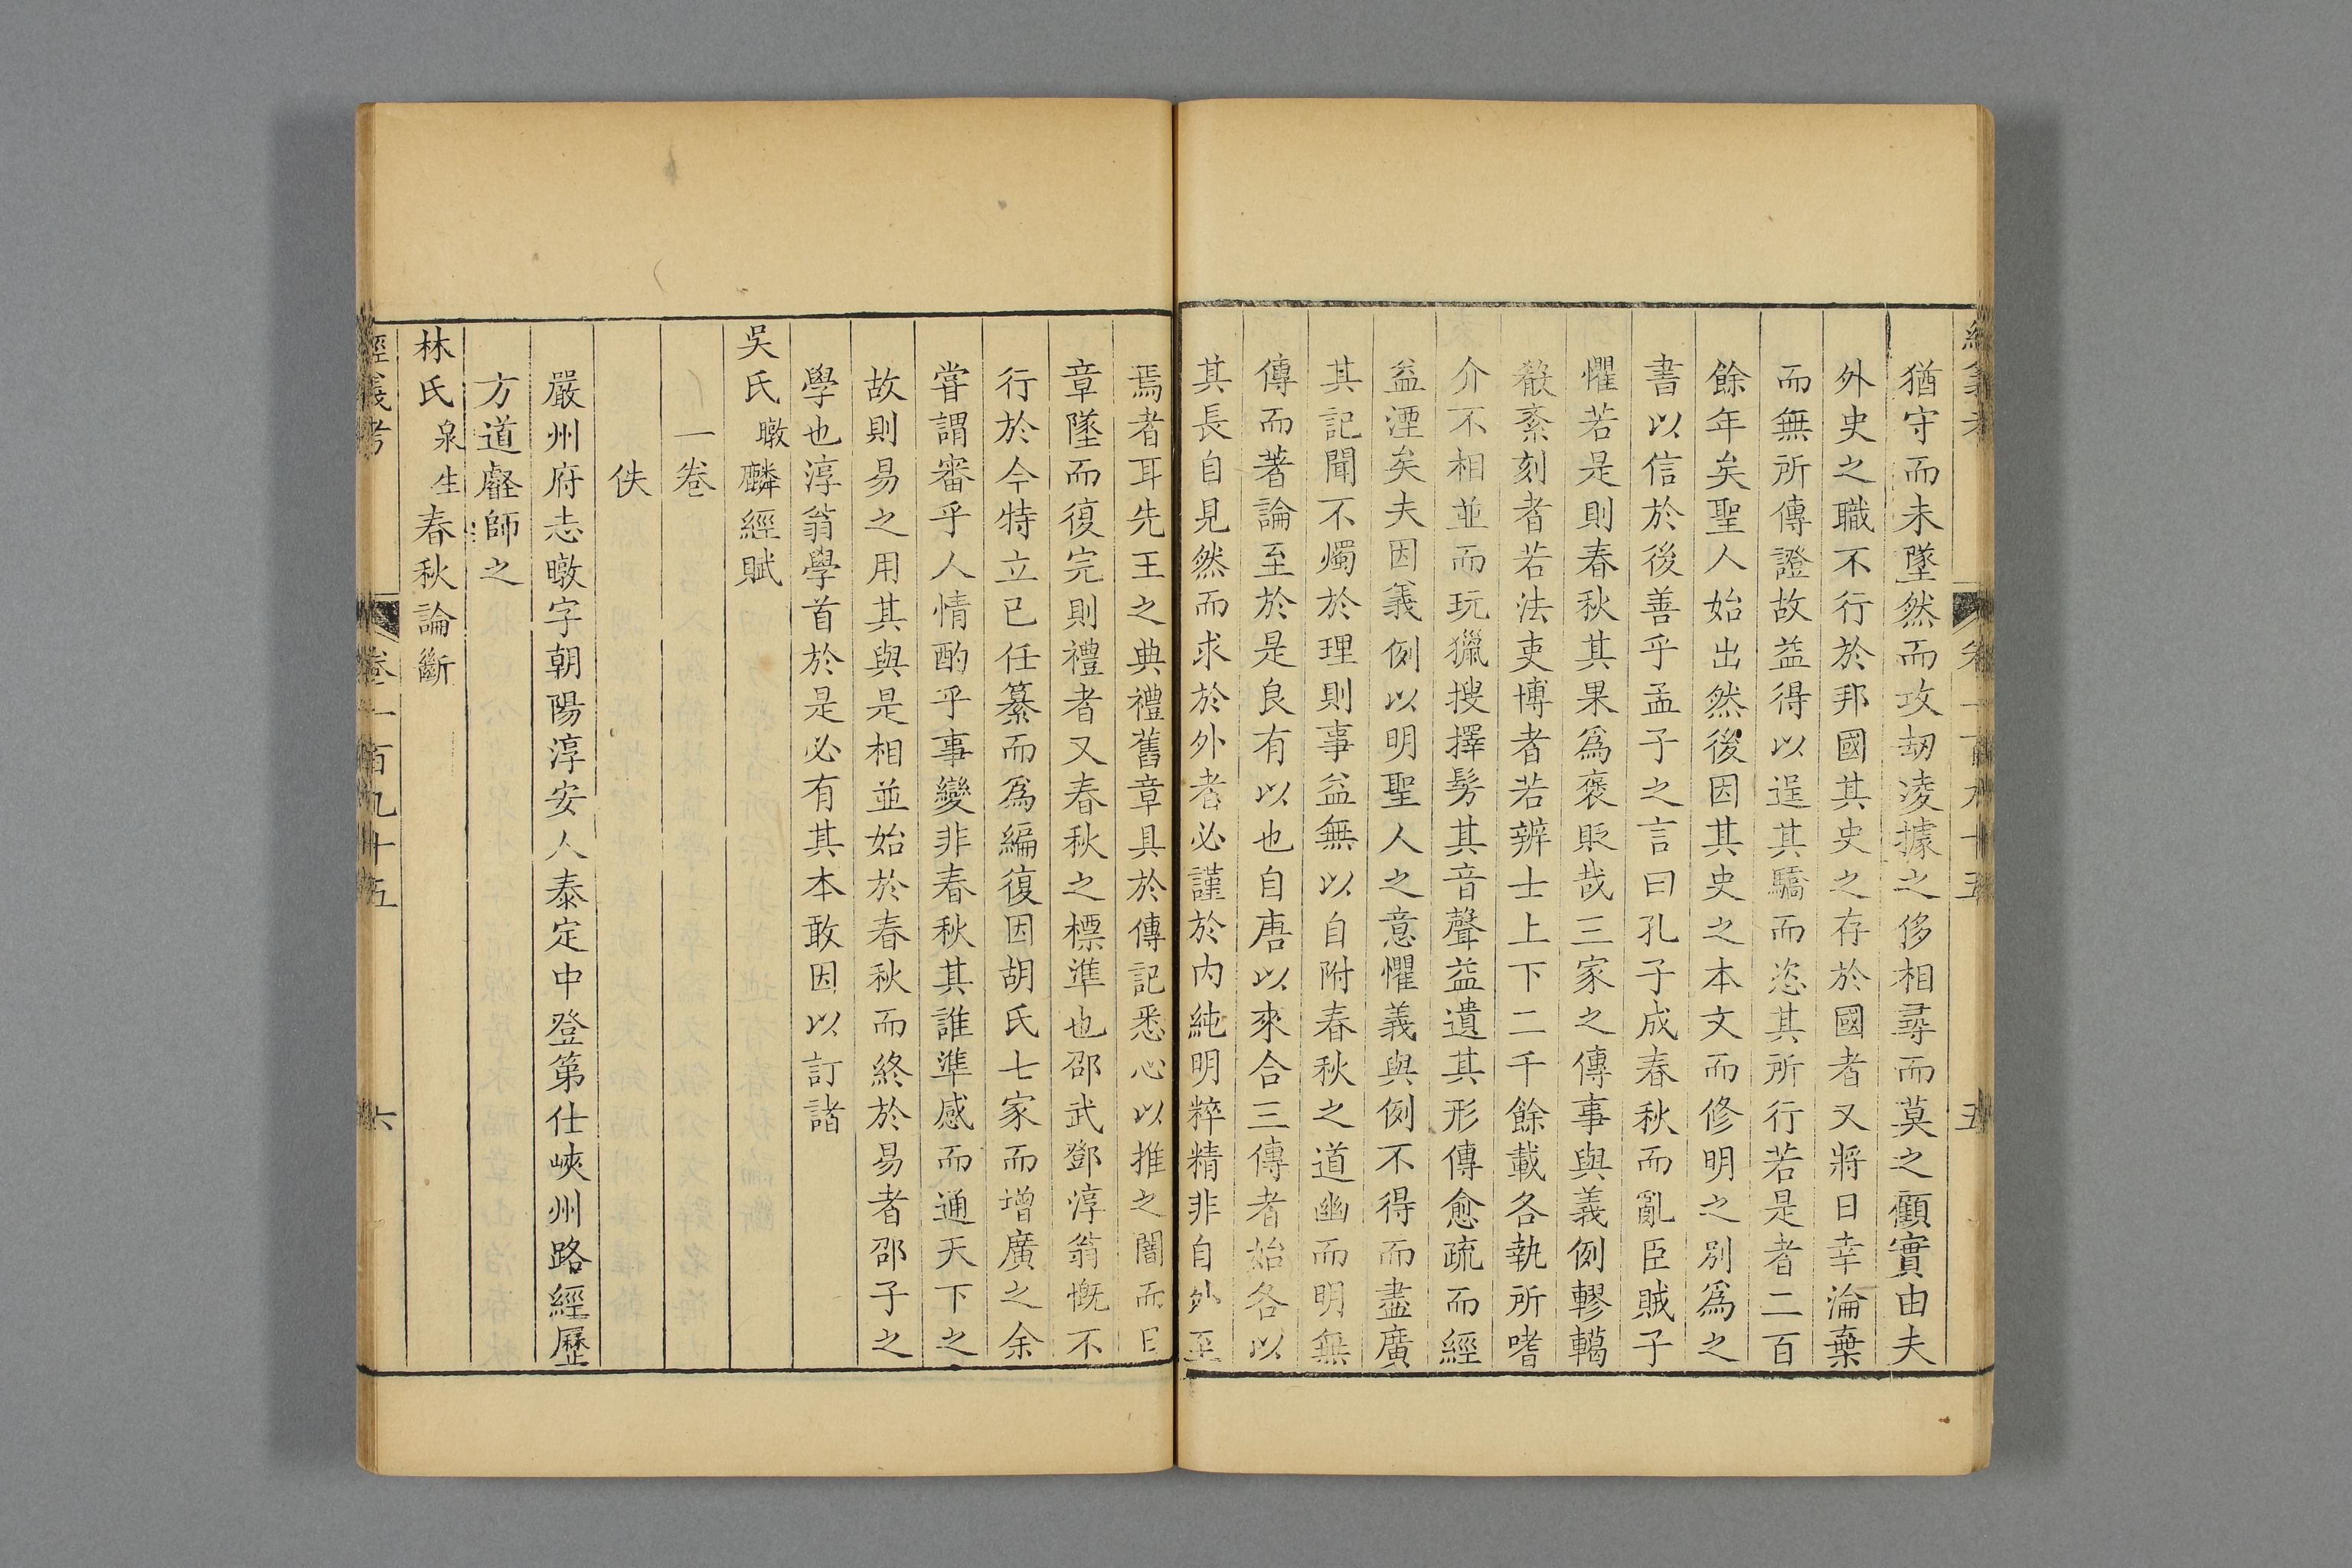 猶守而未墜然而攻刼凌據之侈相尋而莫之顧實由夫
外史之職不行於邦國其史之存於國者又將日幸淪棄
而無所傳證故益得以逞其驕而恣其所行若是者二百
餘年矣聖人始出然後因其史之本文而修明之別爲之
書以信於後善乎孟子之言曰孔子成春秋而亂臣賊子
懼若是則春秋其果爲褒貶哉三家之傳事與義例轇轕
殽紊刻者若法吏博者若辨士上下二千餘載各執所嗜
介不相並而玩獵搜擇髣其音聲益遺其形傳愈疏而經
益湮矣夫因義例以明聖人之意懼義與例不得而盡廣
其記聞不燭於理則事益無以自附春秋之道幽而明無
傳而著論至於是良有以也自唐以來合三傳者始各以
其長自見然而求於外者必謹於內純明粹精非自外至
焉者耳先王之典禮舊章具於傳記悉心以推之闇而日
章墜而復完則禮者又春秋之標準也邵武鄧淳翁慨不
行於今特立已任纂而爲編復因胡氏七家而增廣之余
甞謂審乎人情酌乎事變非春秋其誰準感而通天下之
故則易之用其與是相並始於春秋而終於易者邵子之
學也淳翁學首於是必有其本敢因以訂諸
吳氏暾麟經賦
一卷
佚
嚴州府志暾字朝陽淳安人泰定中登第仕峽州路經歷
方道壡師之
林氏泉生春秋論斷
經義考 卷一百九十五 六